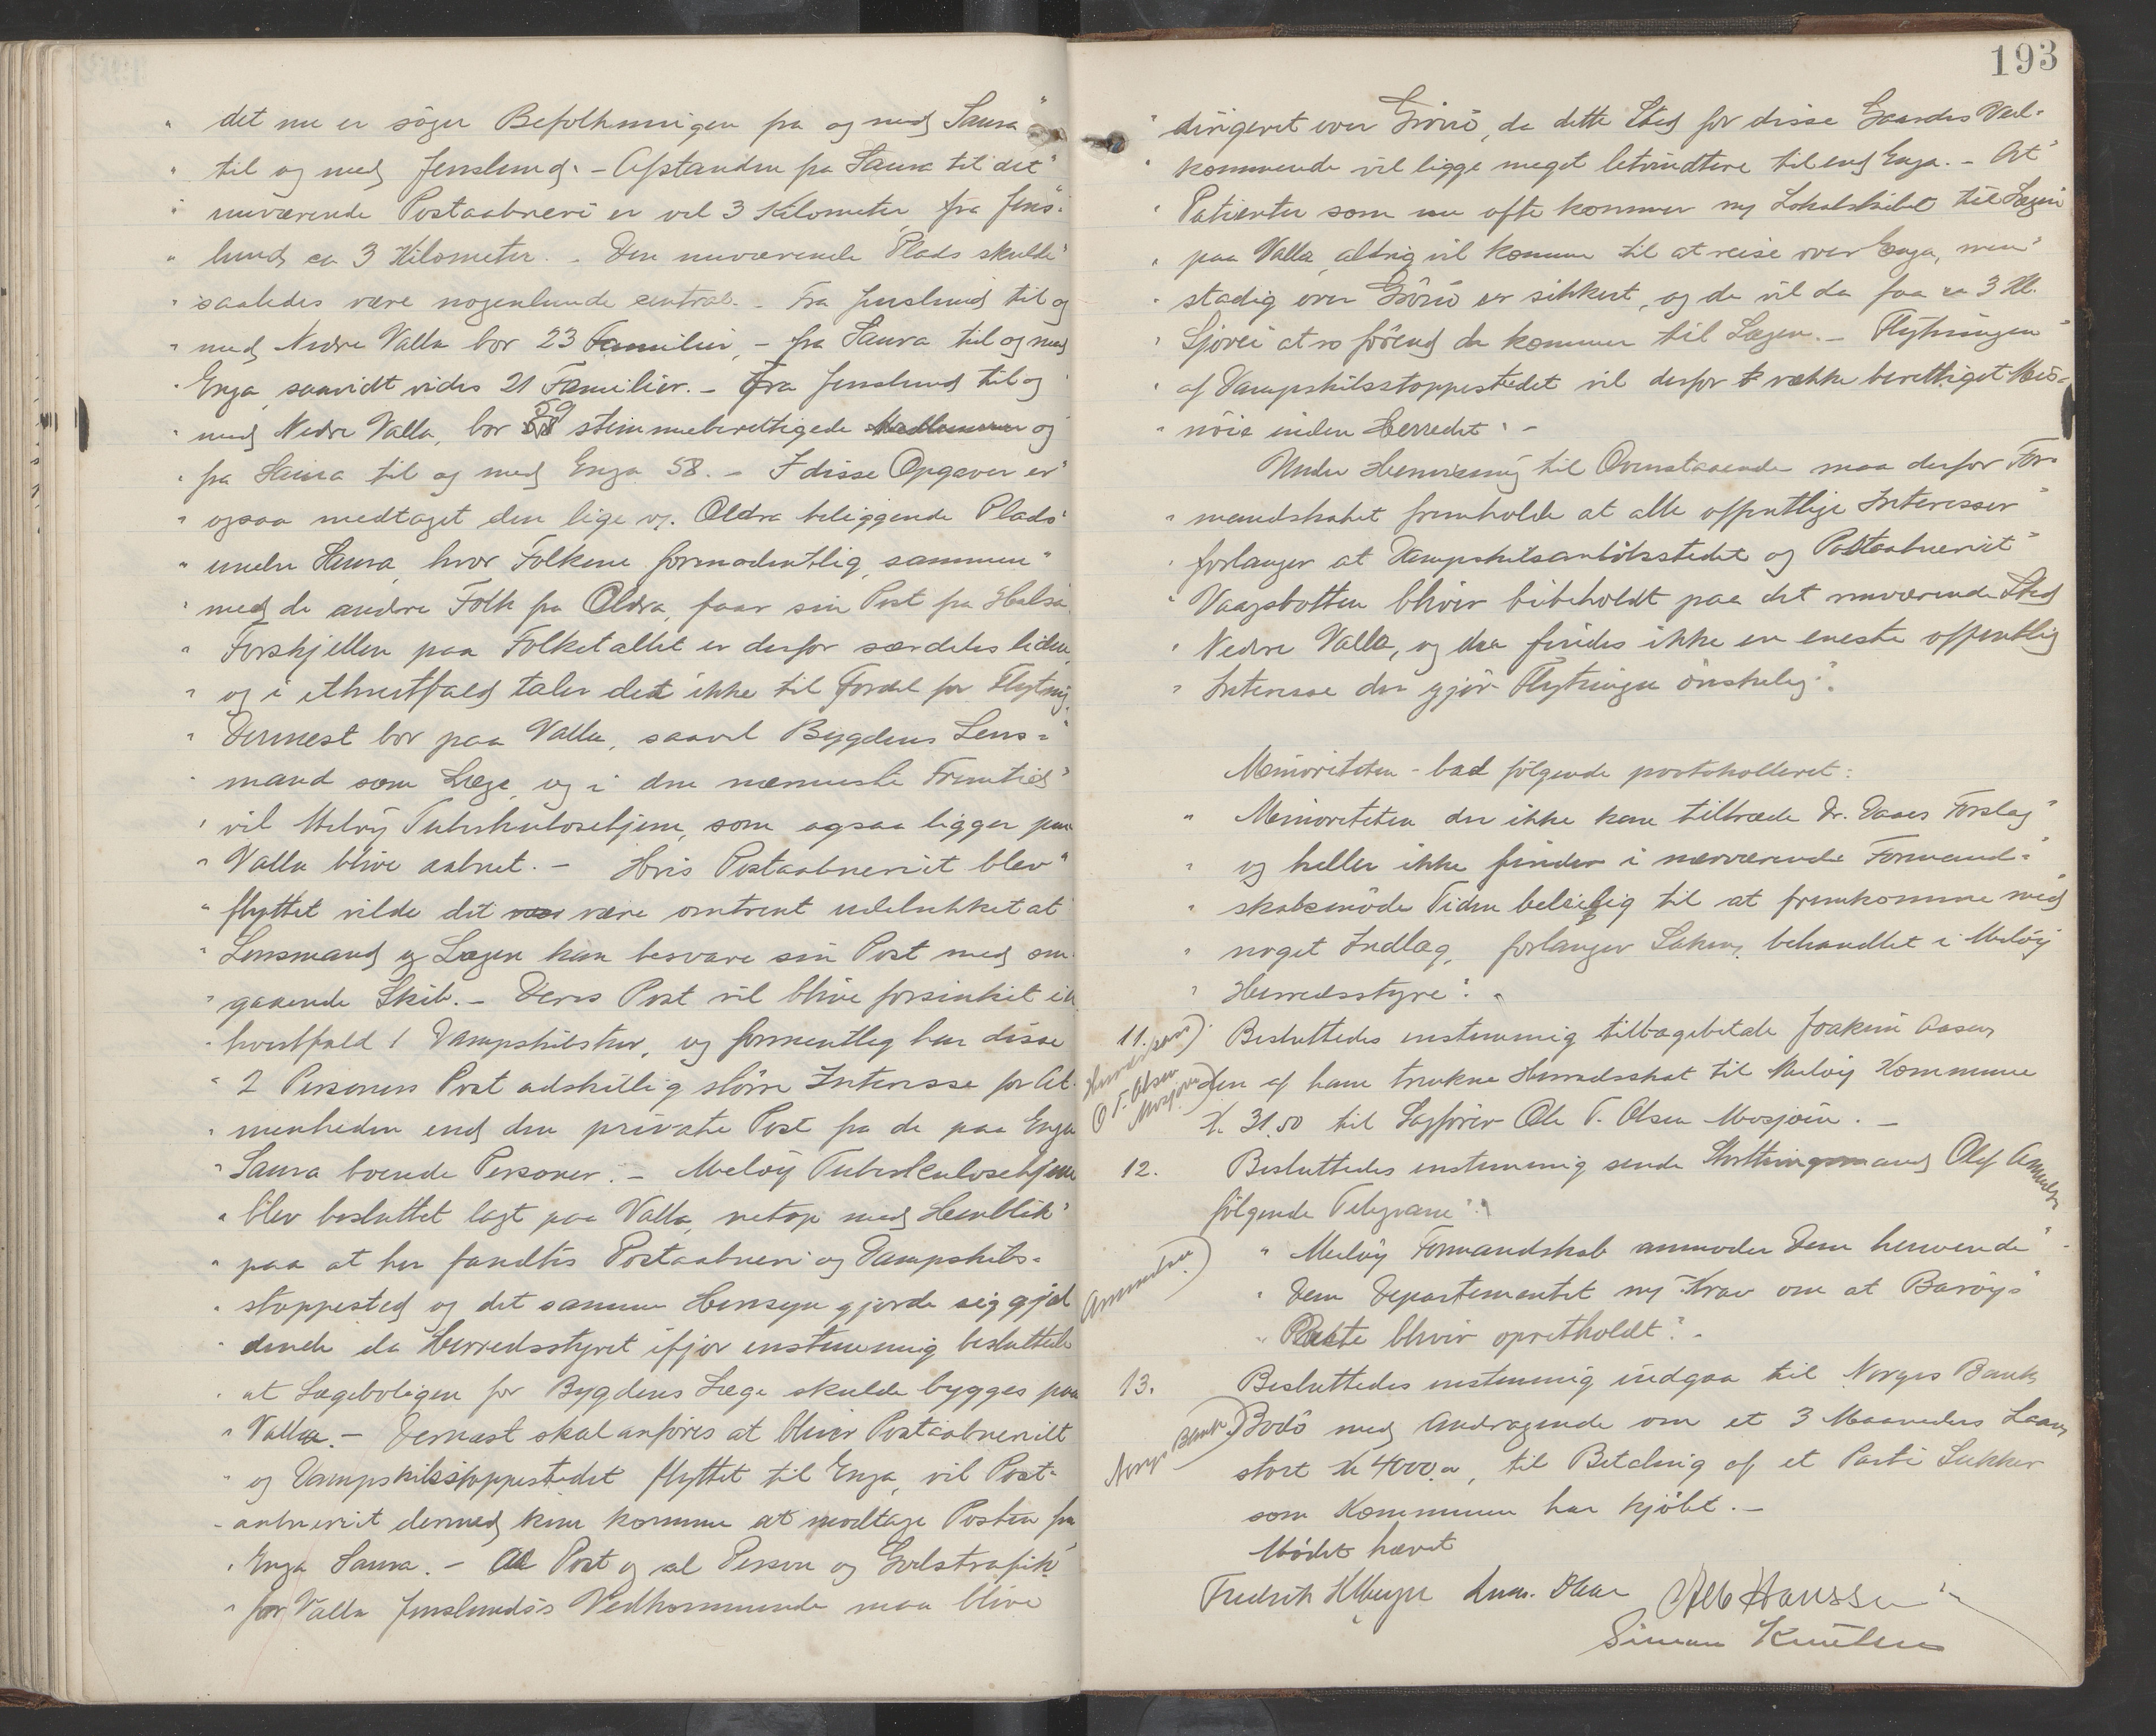 " det nu er søger Befolkningen fra og med Saura "
" til og med Jenslund. - Afstanden fra Saura til det "
" nuværende Postaabneri er vel 3 Kilometer, fra Jens= "
" lund ca 3 Kilometer. - Den nuværende Plads skulde "
" saaledes være nogenlunde central. - Fra Jenslund til og
" med Nedre Valla bor 23 Familier, - fra Saura til og med
" Enga, saavidt vides 21 Familier. - Fra Jenslund til og
" med Nedre Valla, bor 59 stimmeberettigede og
" fra Saura til og med Enga 58. - I disse Opgaver er "
" ogsaa medtaget den lige v. Oldra beliggende Plads "
" under Saura, hvor Folkene formodentlig, sammen "
" med de andre Folk fra Oldra, faar sin Post fra Halsa.
" Forskjellen paa Folketallet er derfor særdeles liden,
" og i ethvertfald taler det ikke til Fordel for Flytning.
" Dernest bor paa Valla, saavel Bygdens Lens= "
" mand som Læge, og i den nærmeste Fremtid "
" vil Meløy Tuberkulosehjem, som ogsaa ligger paa
" Valla blive aabnet. - Hvis Postaabneriet blev "
" flyttet vilde det være omtrent udelukket at
" Lensmand og Lægen kan besvare sin Post med om=
" gaaende Skib. - Deres Post vil blive forsinket i et
" hvertfald 1 Dampskibstur, og formentleg har disse
" 2 Personers Post adskillig større Interesse for Al=
" menheden end den private Post fra de paa Enga
" Saura boende Personer. - Meløy Tuberkulosehjem
" blev besluttet lagt paa Valla, netop med Henblik "
" paa at her fandtes Postaabneri og Dampskibs=
" stoppested og det samme Hensyn gjorde sig gjæl
" dende da Herredsstyret ifjor enstemmig besluttede
" at Lægeboligen for Bygdens Læge skulde bygges paa
" Valla. - Dernæst skal anføres at bliver Postaabneriet
" og Dampskibsstoppestedet flyttet til Enga, vil Post=
" aabneriet dermed kun komme at modtage Posten fra
" Enga Saura. - Al Post og al Person og Godstrafik
" for Valla Jenslunds's Vedkommende maa blive
193
" dirigeret over Grønø, da dette Sted for disse Gaardes Ved=
" kommende vil ligge meget letvindtere til end Enga. - At "
" Patienter som nu ofte kommer m/ Lokalskibet til Lægen
" paa Valla, aldrig vil komme til at reise over Enga, men "
" stadig over Grønø er sikkert, og de vil da faa ca 3 Kl.
" Sjøvei at ro førend de kommer til Lægen. - Flytningen "
" af Dampskibsstoppestedet vil derfor vække berettiget Mis=
" nøie inden Herredet. -
Under Henvisning til Ovenstaaende maa derfor For=
" mandskabet fremholde at alle offentlige Interesser "
" forlanger at Dampskibsanløbsstedet og Postaabneriet "
" Vaagsbotten bliver bibeholdt paa det nuværende Sted
" Nedre Valla, og der findes ikke en eneste offentlig
" Interesse der gjør Flytningen ønskelig".
Minoriteten - bad følgende protokolleret:
" Minoriteten der ikke kan tiltræde Dr. Daaes Forslag "
" og heller ikke finder i nærværende Formand= "
" skabsmøde Tiden beleilig til at fremkomme med
" noget Indlæg, forlanger Saken behandlet i Meløy
" Herredsstyre". "
11. Besluttedes enstemmig tilbagebetale Joakim Aasen
O T. Olsen
Mosjøen)
den af ham trukne Herredsskat til Meløy Kommune
Kr. 31,50 til Sagfører Ole T. Olsen Mosjøen. -
12. Besluttedes enstemmig sende Storthingsmand Olaf Amundsen
følgende Telegram:
Amundsen)
" Meløy Formandskab anmoder Dem henvende "
" Dem Departementet m/ Krav om at Barøy's "
" Rute bliver opretholdt". -
13. Besluttedes enstemmig indgaa til Norges Bank,
Norges Bank)
Bodø med Andragende om et 3 Maaneders Laan
stort Kr 4000,00, til Betaling af et Parti Sukker
som Kommunen har kjøbt. -
Mødet hævet
Fredrik Daae Hanssen
Simon Knutsen